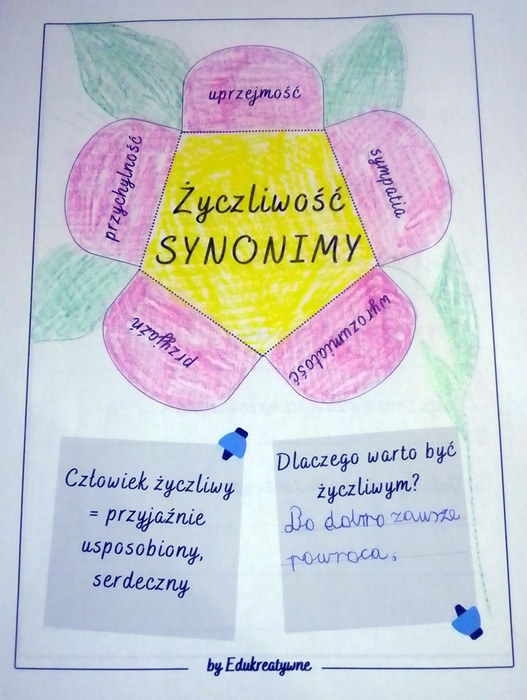 uprzejmość
przychylność
sympatia
Życzliwość
SYNONIMY
przyjaźń
wyrozumiałość
Człowiek życzliwy
= przyjaźnie
usposobiony,
serdeczny
Dlaczego warto być
życzliwym?
Bo dobro zawsze
powraca.
by Edukreatywne